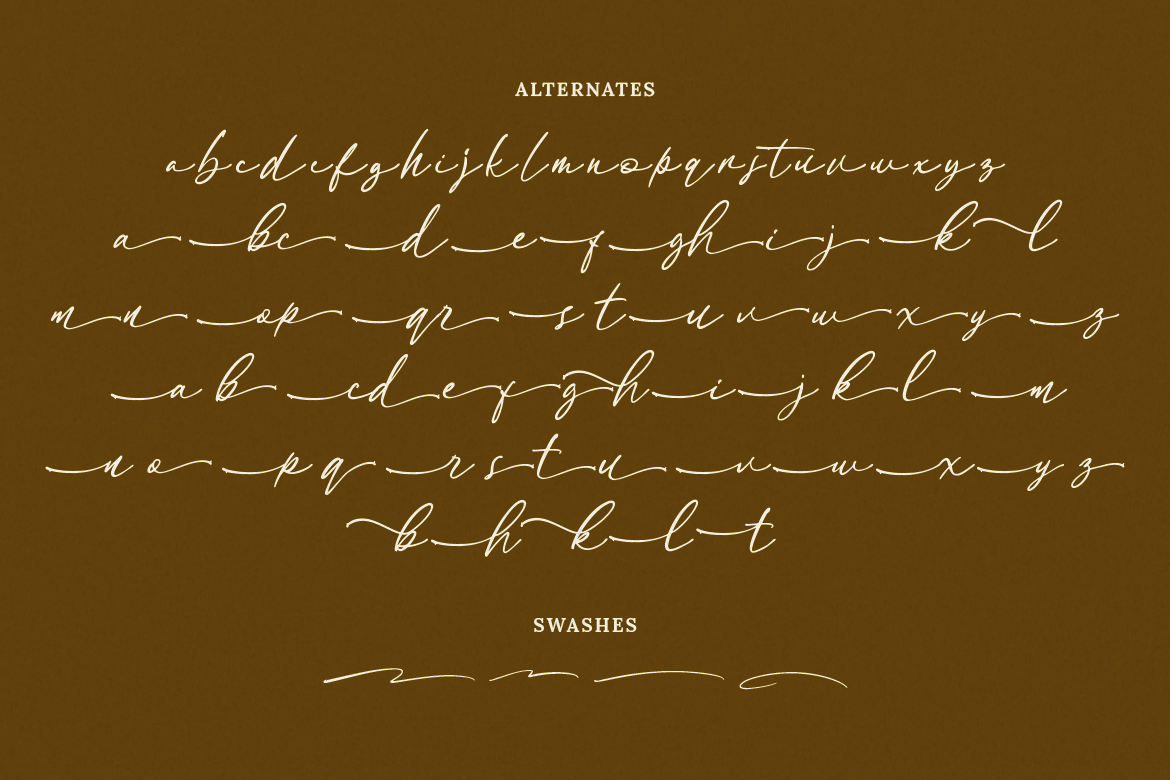 ALTERNATES
abcdefghijklmnopqrstuvwxyz
a bc d e f gh i j k l
m n op qr s t u v w x y z
a b cd e f g h i j k l m
n o p q r s t u v w x y z
b h k l t
SWASHES